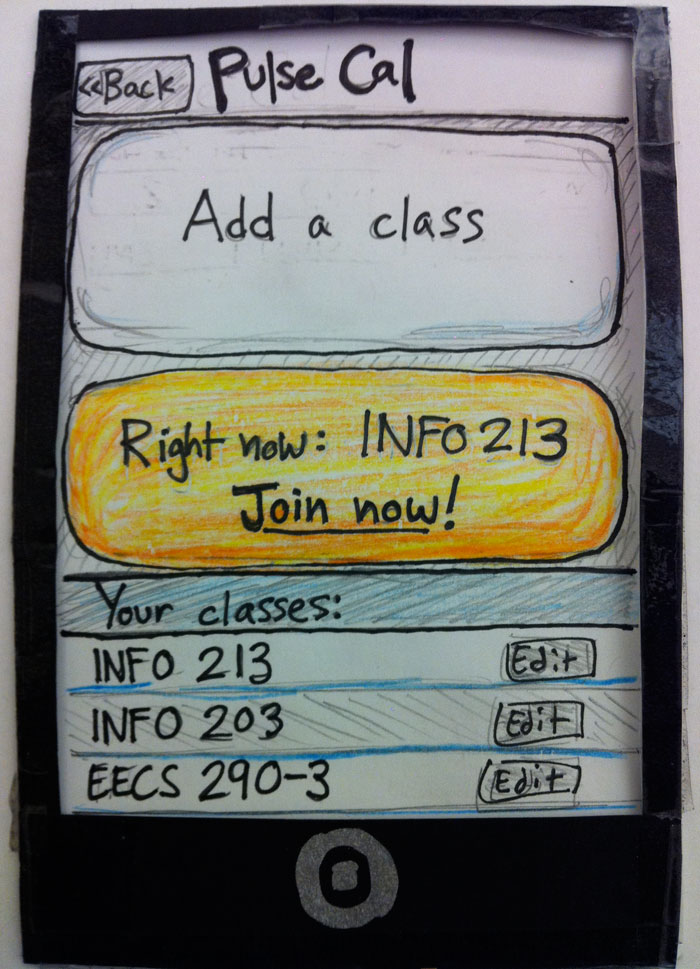 <<Back Pulse Cal
Add a class
Right now: INFO 213
Join now!
Your classes:
INFO 213 Edit
INFO 203 Edit
EECS 290-3 Edit